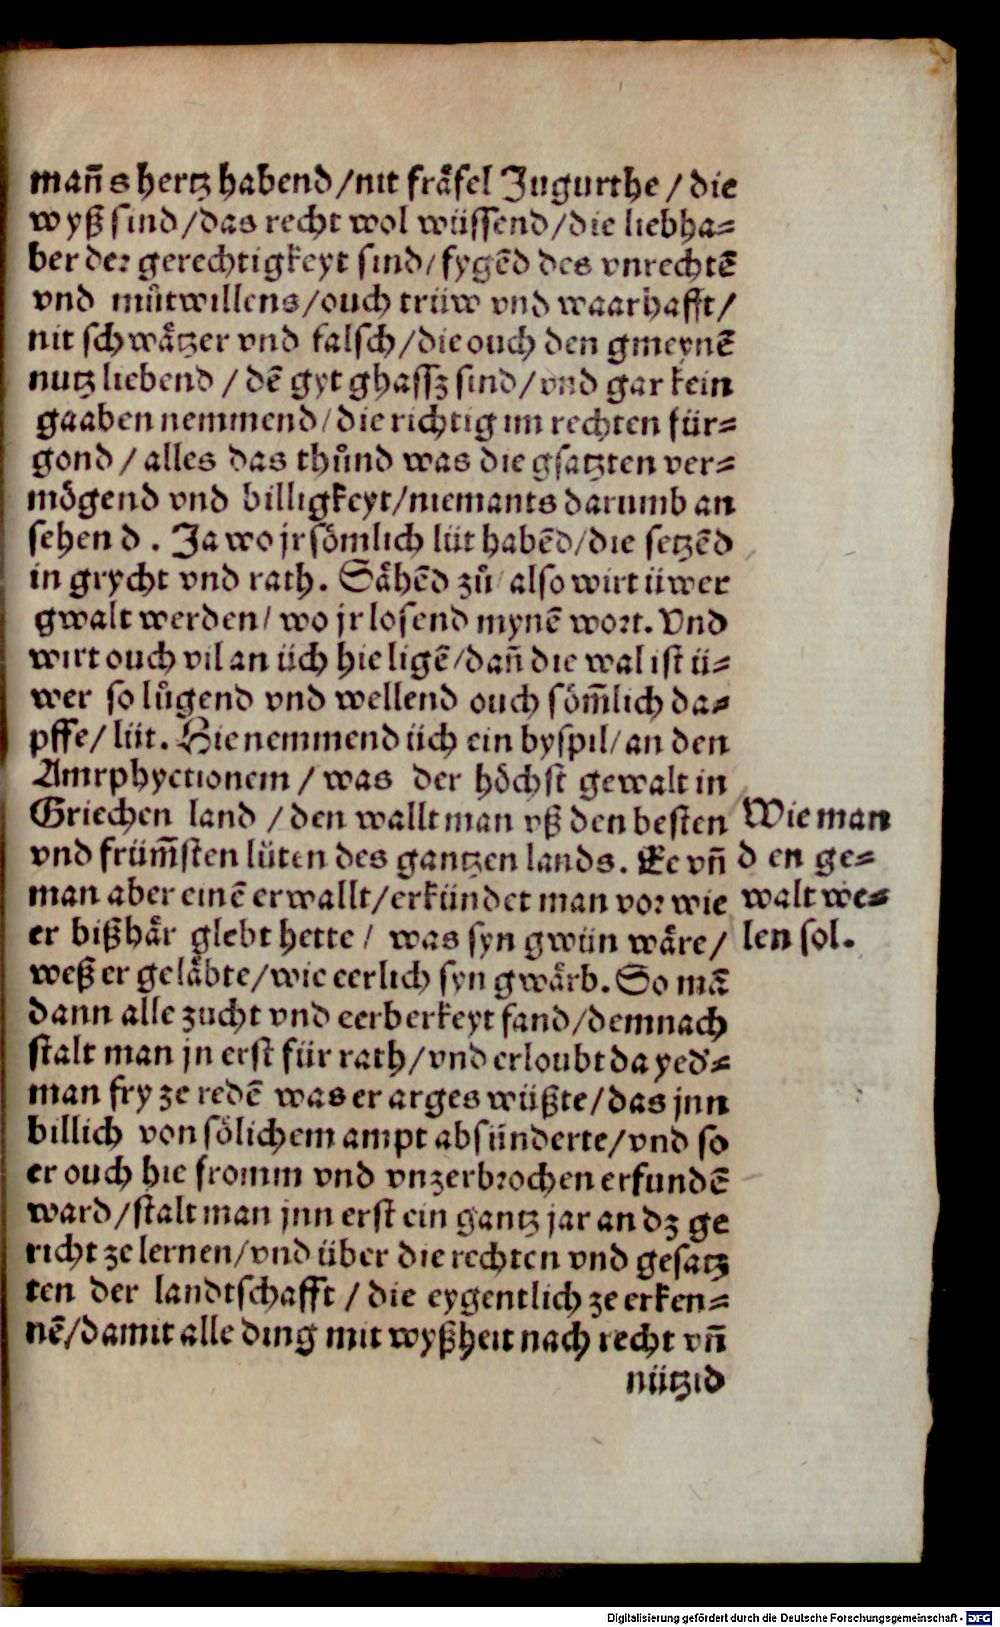 mañs hertz habend/nit fräfel Jugurthe/die
wyß sind/das recht wol wüssend/die liebha⸗
ber der gerechtigkeyt sind/fygẽd des vnrechtẽ
vnd můtwillens/ouch trüw vnd waarhafft/
nit schwätzer vnd falsch/die ouch den gmeynẽ
nutz liebend/dẽ gyt ghassz sind/vnd gar kein
gaaben nemmend/die richtig im rechten für⸗
gond/alles das thůnd was die gsatzten ver⸗
mögend vnd billigkeyt/niemants darumb an
sehend. Ja wo jr sömlich lüt habẽd/die setzẽd
in grycht vnd rath. Sähẽd zů/also wirt üwer
gwalt werden/wo jr losend mynẽ wort. Vnd
wirt ouch vil an üch hie ligẽ/dañ die wal ist ü⸗
wer so lůgend vnd wellend ouch söm̃lich da⸗
pffe/lüt. Hie nemmend üch ein byspil/an den
Amrphyctionem/was der höchst gewalt in
Griechen land/den wallt man vß den besten
vnd früm̃sten lüten des gantzen lands. Ee vñ
man aber einẽ erwallt/erkündet man vor wie
er bißhär glebt hette/was syn gwün wäre/
weß er geläbte/wie eerlich syn gwärb. So mã
dann alle zucht vnd eerberkeyt fand/demnach
stalt man jn erst für rath/vnd erloubt da yed⸗
man fry ze redẽ was er arges wüßte/das jnn
billich von sölichem ampt absünderte/vnd so
er ouch hie fromm vnd vnzerbrochen erfundẽ
ward/stalt man jnn erst ein gantz jar an dz ge
richt ze lernen/vnd über die rechten vnd gesatz
ten der landtschafft/die eygentlich ze erken⸗
nẽ/damit alle ding mit wyßheit nach recht vñ
nützid
Wie man
den ge⸗
walt we⸗
len sol.
Digitalisierung gefördert durch die Deutsche Forschungsgemeinschaft - DFG